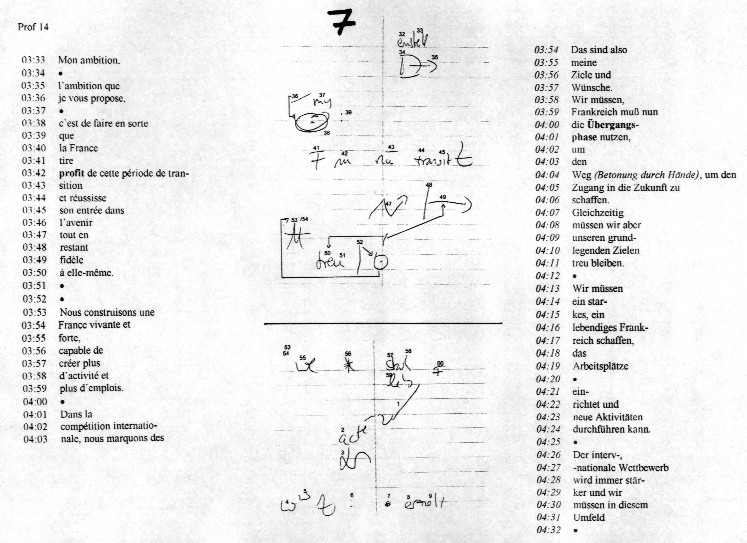 Prof 14
7
03:33 Mon ambition.
03:34 •
03:35 l'ambition que
03:36 je vous propose,
03:37 •
03:38 c'est de faire en sorte
03:39 que
03:40 la France
03:41 tire
03:42 profit de cette période de tran-
03:43 sition
03:44 et réussisse
03:45 son entrée dans
03:46 l'avenir
03:47 tout en
03:48 restant
03:49 fidèle
03:50 à elle-même.
03:51 •
03:52 •
03:53 Nous construisons une
03:54 France vivante et
03:55 forte,
03:56 capable de
03:57 créer plus
03:58 d'activité et
03:59 plus d'emplois.
04:00 •
04:01 Dans la
04:02 compétition internatio-
04:03 nale, nous marquons des
32 33
34 35
36 37
my
39
38
41 42 43 44 45
F transit
47 48 49
53 /54
50 51 52
treu
53
54 55 56 57 58
1
2
acte
3
4 5 6 7 8 9
03:54 Das sind also
03:55 meine
03:56 Ziele und
03:57 Wünsche.
03:58 Wir müssen,
03:59 Frankreich muß nun
04:00 die Übergangs-
04:01 phase nutzen,
04:02 um
04:03 den
04:04 Weg (Betonung durch Hände), um den
04:05 Zugang in die Zukunft zu
04:06 schaffen.
04:07 Gleichzeitig
04:08 müssen wir aber
04:09 unseren grund-
04:10 legenden Zielen
04:11 treu bleiben.
04:12 •
04:13 Wir müssen
04:14 ein star-
04:15 kes, ein
04:16 lebendiges Frank-
04:17 reich schaffen,
04:18 das
04:19 Arbeitsplätze
04:20 •
04:21 ein-
04:22 richtet und
04:23 neue Aktivitäten
04:24 durchführen kann.
04:25 •
04:26 Der interv-,
04:27 -nationale Wettbewerb
04:28 wird immer stär-
04:29 ker und wir
04:30 müssen in diesem
04:31 Umfeld
04:32 •